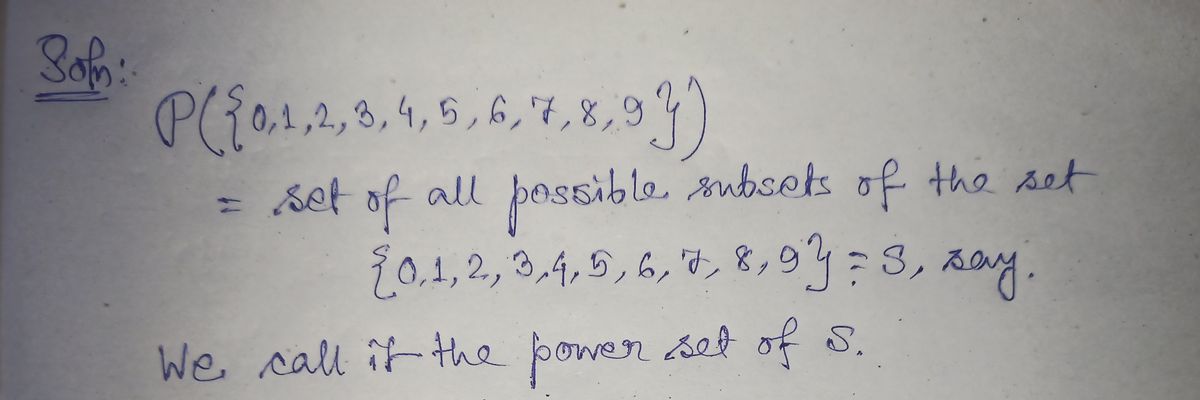 Soln:
P({0,1,2,3,4,5,6,7,8,9})
= set of all possible subsets of the set
{0,1,2,3,4,5,6,7,8,9} = S, say.
We call it the power set of S.